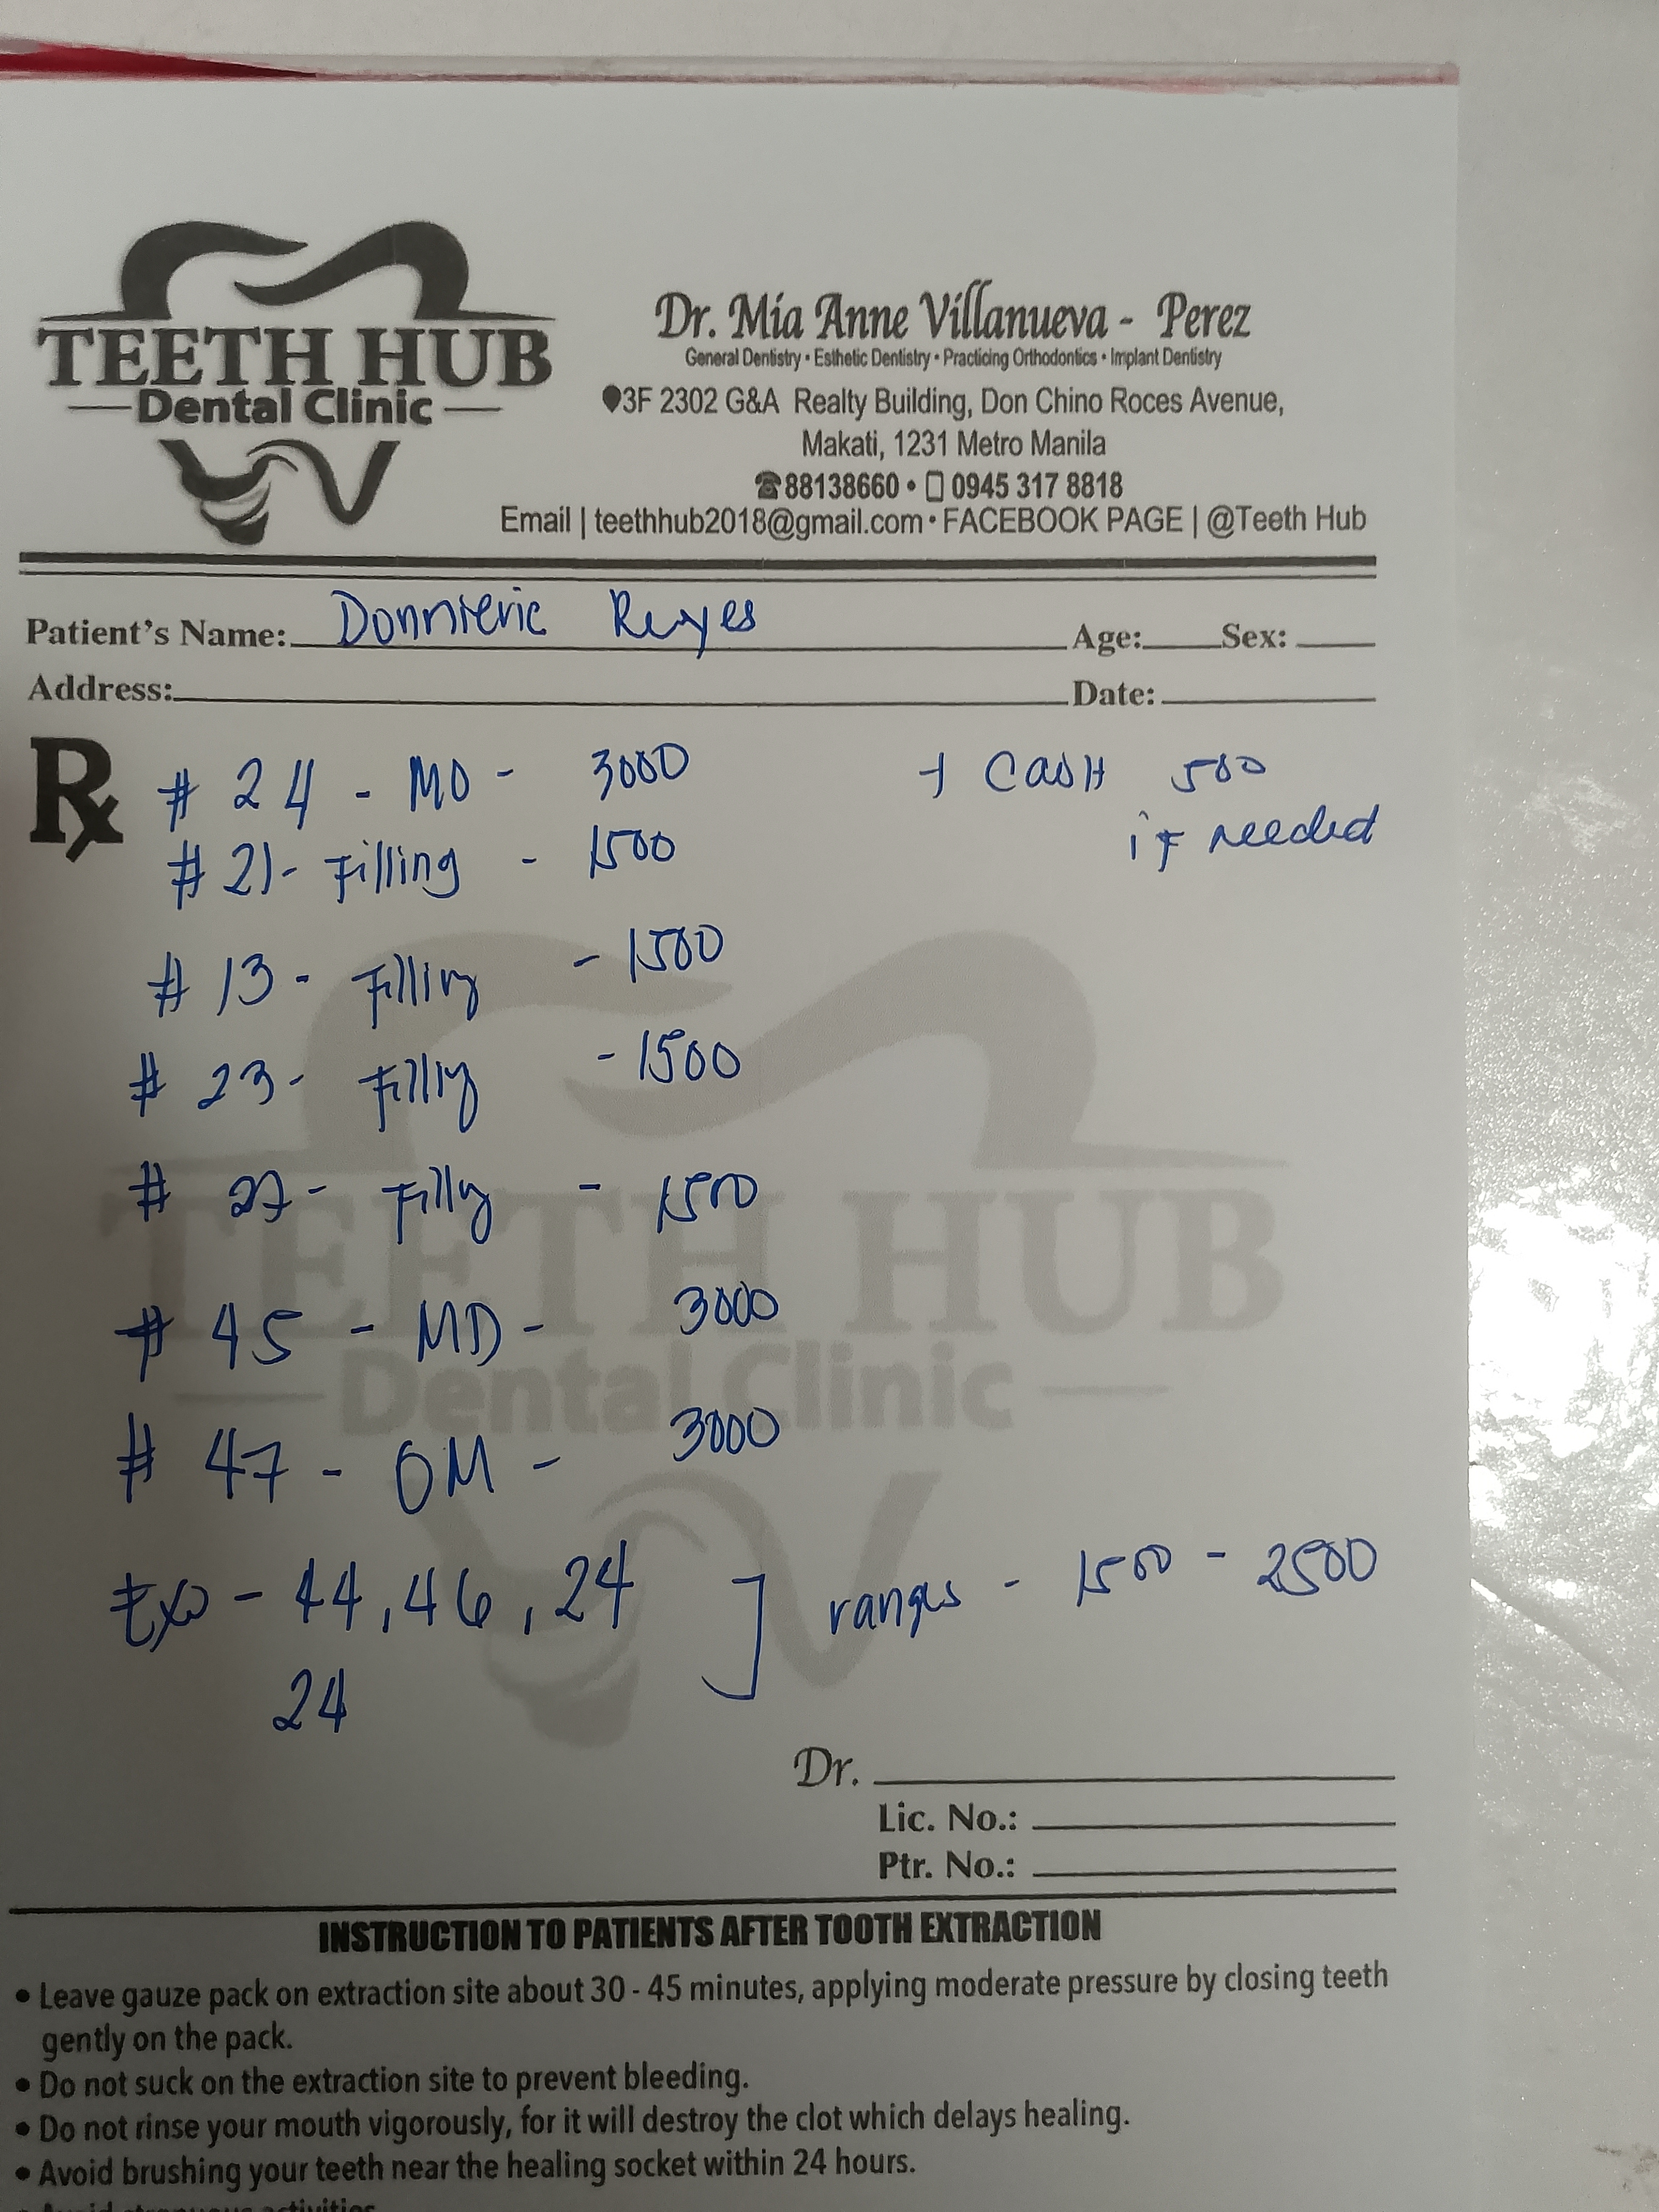 TEETH HUB
Dental Clinic
Dr. Mia Anne Villanueva - Perez
General Dentistry • Esthetic Dentistry • Practicing Orthodontics • Implant Dentistry
3F 2302 G&A Realty Building, Don Chino Roces Avenue,
Makati, 1231 Metro Manila
☎88138660 • 0945 317 8818
Email | teethhub2018@gmail.com • FACEBOOK PAGE | @Teeth Hub
Patient's Name: Donnieric Reyes Age: Sex:
Address: Date:
Rx
# 24 - MO - 3000 + Cash 500
if needed
# 21 - Filling - 1500
# 13 - Filling - 1500
# 23 - Filling - 1500
# 27 - Filling - 1500
# 45 - MD - 3000
# 47 - OM - 3000
Exo - 44, 46, 24 ] ranges - 1500 - 2500
24
TEETH HUB
Dental Clinic
Dr.
Lic. No.:
Ptr. No.:
INSTRUCTION TO PATIENTS AFTER TOOTH EXTRACTION
• Leave gauze pack on extraction site about 30 - 45 minutes, applying moderate pressure by closing teeth
gently on the pack.
• Do not suck on the extraction site to prevent bleeding.
• Do not rinse your mouth vigorously, for it will destroy the clot which delays healing.
• Avoid brushing your teeth near the healing socket within 24 hours.
• Avoid strenuous activities